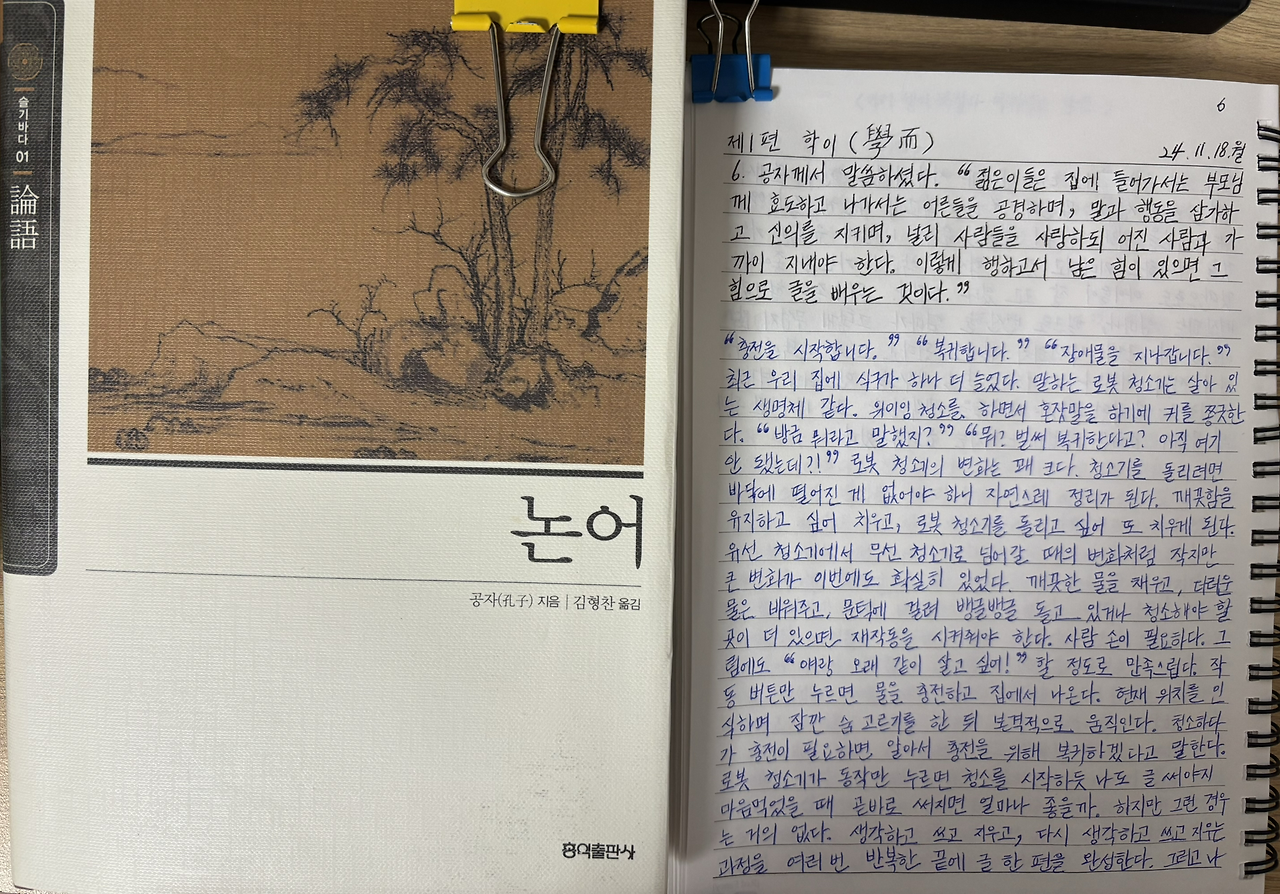 슬기바다 01
論語
논어
공자(孔子) 지음 | 김형찬 옮김
홍익출판사
6
제1편 학이 (學而)
24. 11. 18. 월
6. 공자께서 말씀하셨다. "젊은이들은 집에 들어가서는 부모님
께 효도하고 나가서는 어른들을 공경하며, 말과 행동을 삼가하
고 신의를 지키며, 널리 사람들을 사랑하되 어진 사람과 가
까이 지내야 한다. 이렇게 행하고서 남은 힘이 있으면 그
힘으로 글을 배우는 것이다."
"충전을 시작합니다." "복귀합니다." "장애물을 지나갑니다."
최근 우리 집에 식구가 하나 더 늘었다. 말하는 로봇 청소기는 살아 있
는 생명체 같다. 위이잉 청소를 하면서 혼잣말을 하기에 귀를 쫑긋한
다. "방금 뭐라고 말했지?" "뭐? 벌써 복귀한다고? 아직 여기
안 됐는데?!" 로봇 청소기의 변화는 꽤 크다. 청소기를 돌리려면
바닥에 떨어진 게 없어야 하니 자연스레 정리가 된다. 깨끗함을
유지하고 싶어 치우고, 로봇 청소기를 돌리고 싶어 또 치우게 된다.
유선 청소기에서 무선 청소기로 넘어갈 때의 변화처럼 작지만
큰 변화가 이번에도 확실히 있었다. 깨끗한 물을 채우고, 더러운
물은 비워주고, 문턱에 걸려 뱅글뱅글 돌고 있거나 청소해야 할
곳이 더 있으면 재작동을 시켜줘야 한다. 사람 손이 필요하다. 그
럼에도 "얘랑 오래 같이 살고 싶어!" 할 정도로 만족스럽다. 작
동 버튼만 누르면 물을 충전하고 집에서 나온다. 현재 위치를 인
식하며 잠깐 숨 고르기를 한 뒤 본격적으로 움직인다. 청소하다
가 충전이 필요하면 알아서 충전을 위해 복귀하겠다고 말한다.
로봇 청소기가 동작만 누르면 청소를 시작하듯 나도 글 써야지
마음먹었을 때 곧바로 써지면 얼마나 좋을까. 하지만 그런 경우
는 거의 없다. 생각하고 쓰고 지우고, 다시 생각하고 쓰고 지우는
과정을 여러 번 반복한 끝에 글 한 편을 완성한다. 그리고 나